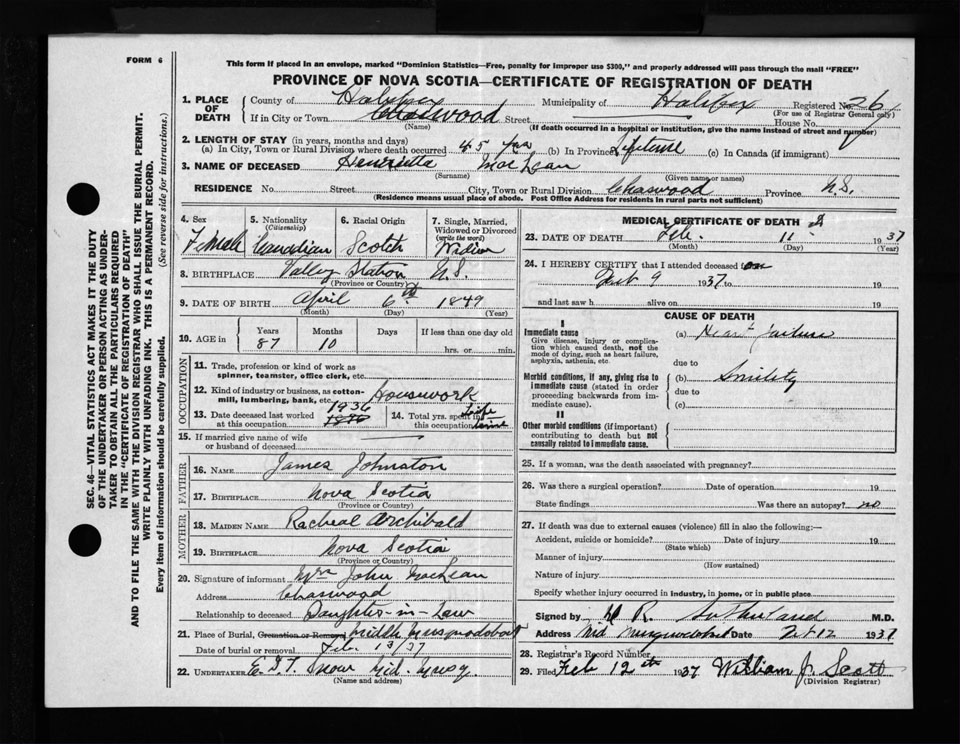 FORM 6
This form if placed in an envelope, marked "Dominion Statistics—Free, penalty for improper use $300," and properly addressed will pass through the mail "FREE"
PROVINCE OF NOVA SCOTIA—CERTIFICATE OF REGISTRATION OF DEATH
SEC. 46—VITAL STATISTICS ACT MAKES IT THE DUTY
OF THE UNDERTAKER OR PERSON ACTING AS UNDER-
TAKER TO OBTAIN ALL THE PARTICULARS REQUIRED
IN THE "CERTIFICATE OF REGISTRATION OF DEATH"
AND TO FILE THE SAME WITH THE DIVISION REGISTRAR WHO SHALL ISSUE THE BURIAL PERMIT.
WRITE PLAINLY WITH UNFADING INK. THIS IS A PERMANENT RECORD.
Every item of information should be carefully supplied. (See reverse side for instructions.)
1. PLACE OF DEATH
County of Halifax Municipality of Halifax Registered No. 26
(For use of Registrar General only)
If in City or Town Chaswood Street House No.
(Name) (If death occurred in a hospital or institution, give the name instead of street and number)
2. LENGTH OF STAY (in years, months and days)
(a) In City, Town or Rural Division where death occurred 45 yrs (b) In Province Lifetime (c) In Canada (if immigrant)
3. NAME OF DECEASED Henrietta MacLean
(Surname) (Given name or names)
RESIDENCE No. Street City, Town or Rural Division Chaswood Province N.S.
(Residence means usual place of abode. Post Office Address for residents in rural parts not sufficient)
4. Sex Female
5. Nationality (Citizenship) Canadian
6. Racial Origin Scotch
7. Single, Married, Widowed or Divorced (write the word) Widow
8. BIRTHPLACE Valley Station N.S.
(Province or Country)
9. DATE OF BIRTH April 6th 1849
(Month) (Day) (Year)
10. AGE in Years 87 Months 10 Days If less than one day old hrs. or min.
OCCUPATION
11. Trade, profession or kind of work as spinner, teamster, office clerk, etc.
12. Kind of industry or business, as cotton-mill, lumbering, bank, etc. Housework
13. Date deceased last worked at this occupation 1936
14. Total yrs. spent in this occupation Life time
15. If married give name of wife or husband of deceased
FATHER
16. NAME James Johnston
17. BIRTHPLACE Nova Scotia
(Province or Country)
MOTHER
18. MAIDEN NAME Racheal Archibald
19. BIRTHPLACE Nova Scotia
(Province or Country)
20. Signature of informant Mrs John MacLean
Address Chaswood
Relationship to deceased Daughter-in-Law
21. Place of Burial, Cremation or Removal Middle Musquodoboit
Date of burial or removal Feb. 13/37
22. UNDERTAKER Snow Mid. Musq.
(Name and address)
MEDICAL CERTIFICATE OF DEATH
23. DATE OF DEATH Feb. 11 1937
(Month) (Day) (Year)
24. I HEREBY CERTIFY that I attended deceased on
Feb 9 1937 to 19
and last saw h alive on 19
CAUSE OF DEATH
I
Immediate cause
Give disease, injury or complication which caused death, not the mode of dying, such as heart failure, asphyxia, asthenia, etc.
(a) Heart failure
due to
Morbid conditions, if any, giving rise to immediate cause (stated in order proceeding backwards from immediate cause).
(b) Senility
due to
(c)
II
Other morbid conditions (if important) contributing to death but not causally related to immediate cause.
25. If a woman, was the death associated with pregnancy?
26. Was there a surgical operation? Date of operation 19
State findings Was there an autopsy? no
27. If death was due to external causes (violence) fill in also the following:—
Accident, suicide or homicide? Date of injury 19
(State which)
Manner of injury
(How sustained)
Nature of injury
Specify whether injury occurred in industry, in home, or in public place
Signed by D R Sutherland M.D.
Address Mid Musquodoboit Date Feb 12 1937
28. Registrar's Record Number
29. Filed Feb 12th 1937 William J. Scott
(Division Registrar)